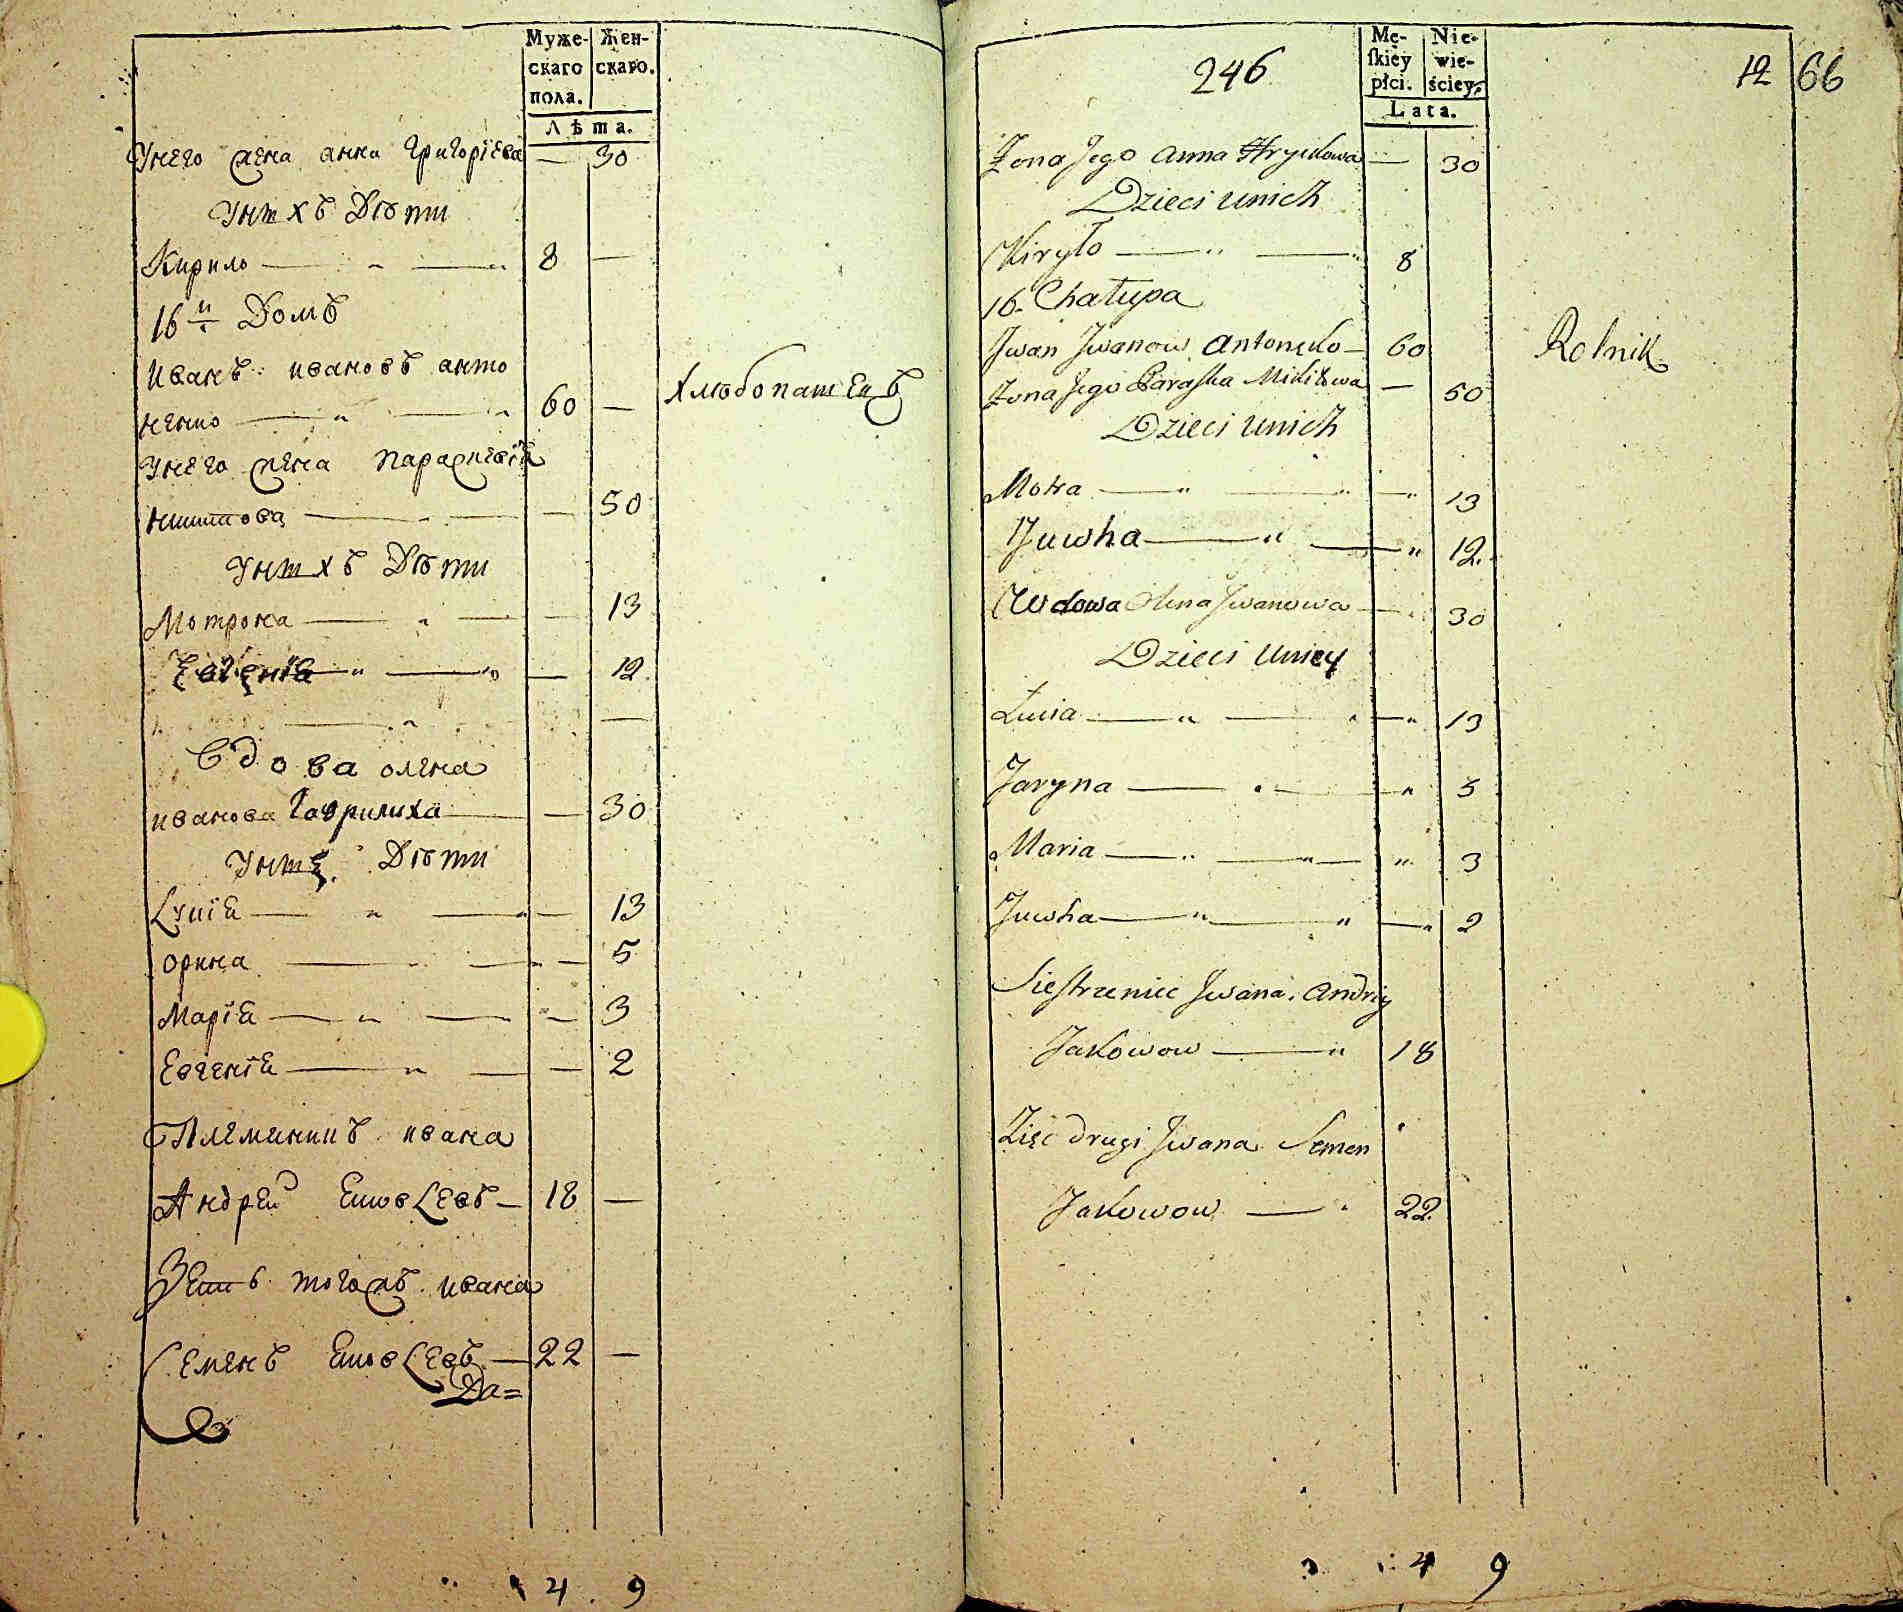 Муже-
скаго
пола.
Жен-
скаго.
Лѣта.
Унего жена анна Григорїева — 30
Унихъ Дѣти
Кирило — „ — „ 8 —
16й Домъ
Иванъ ивановъ анто
ненко — „ — „ 60 — Хлѣбопашецъ
Унего жена Параскевїя
Никитова — 50
Унихъ Дѣти
Мотрона — „ — — 13
Евгенїя — „ — „ — 12
— „ —
Вдова олена
иванова Гаврилиха — — 30
Уней Дѣти
Луцїя — „ — „ — 13
орина — — „ — 5
Марїя — „ — — 3
Евгенїя — „ — — 2
Племянникъ ивана
Андрей Яковлевъ — 18 —
Зять тогожъ ивана
Семенъ Яковлевъ — 22 —
Да=
4 . 9
246
Mę-
skiey
płci.
Nie-
wie-
ściey.
Lata.
12 66
Żona Jego Anna Hryckowa — 30
Dzieci unich
Kiryło — „ — „ 8
16. Chałupa
Jwan Jwanow Antonenko — 60 Rolnik
Żona Jego Paraska Mikitowa — 50
Dzieci unich
Motra — „ — „ — „ 13
Juwha — „ — „ 12.
Wdowa Olena Jwanowa — 30
Dzieci uniey
Łucia — „ — „ — „ 13
Jaryna — „ — „ 5
Maria — „ — „ — „ 3
Juwha — „ — „ — „ 2
Siestrzeniec Jwana. Andriy
Jakowow — „ 18
Zięć drugi Jwana Semen
Jakowow — „ 22.
4 9